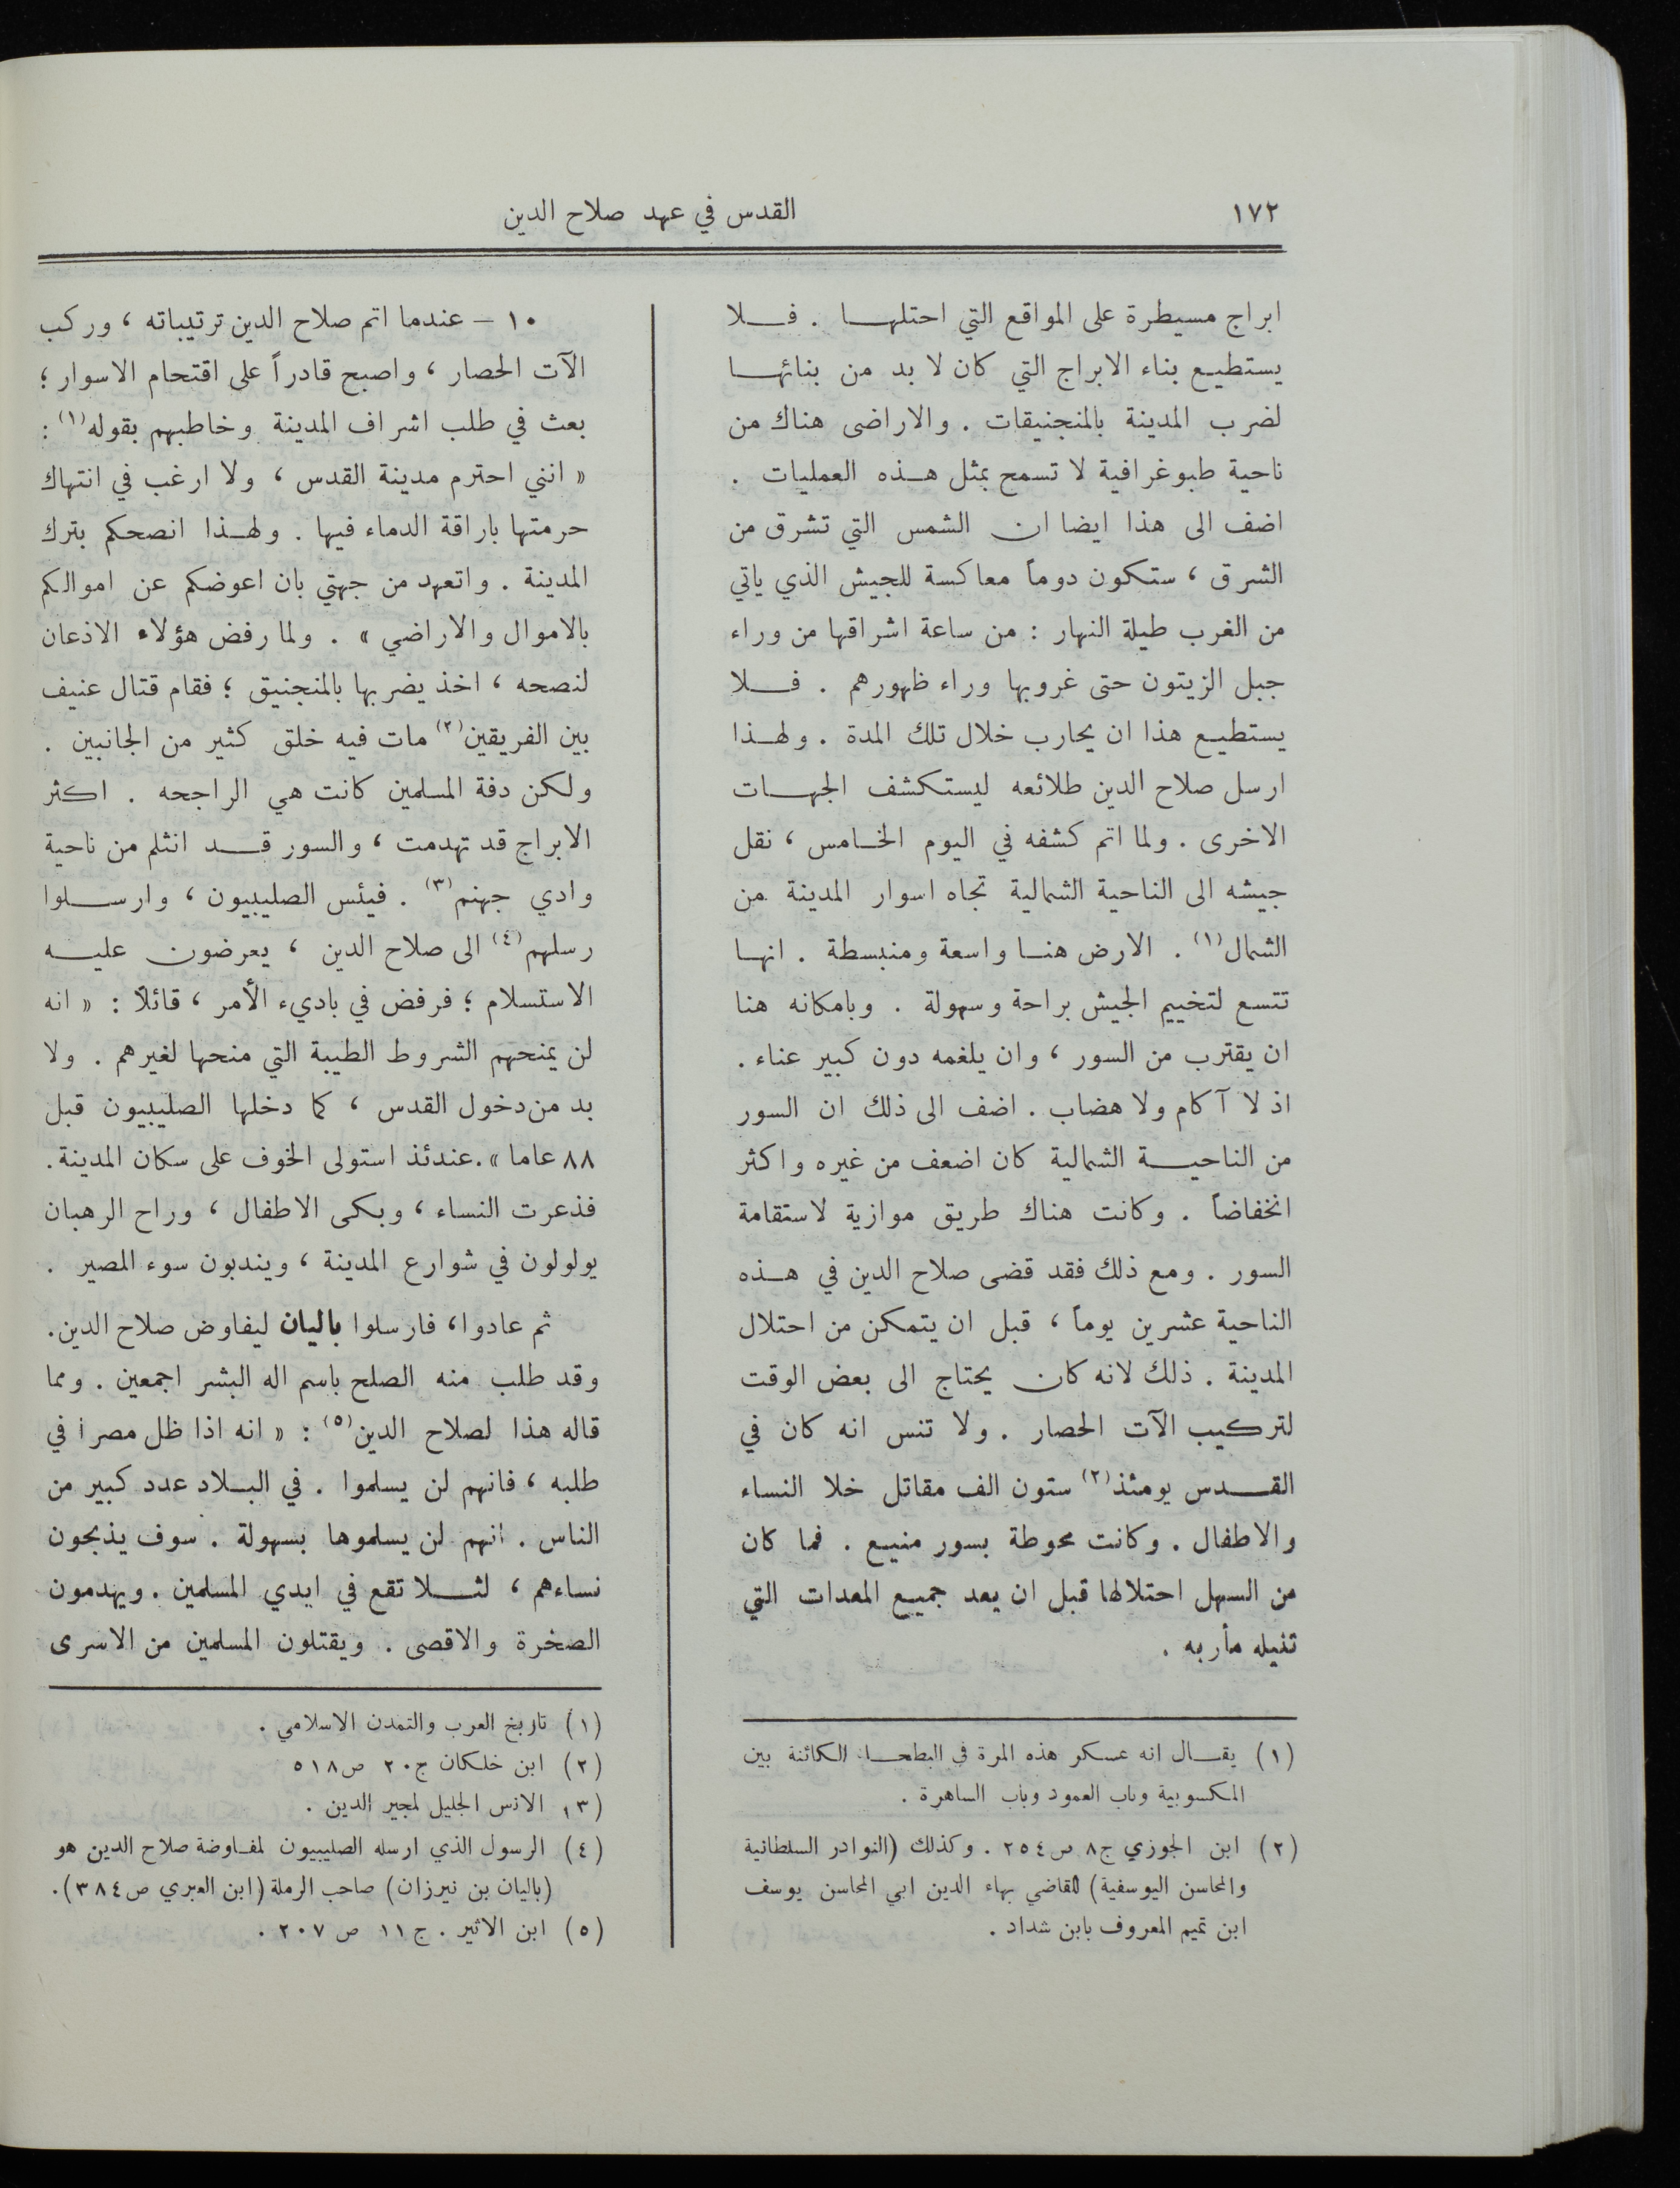 ١٧٢
القدس في عهد صلاح الدين
ابراج مسيطرة على المواقع التي احتلهـا . فـلا
يستطيع بناء الابراج التي كان لا بد من بنائهـا
لضرب المدينة بالمنجنيقات . والاراضى هناك من
ناحية طبوغرافية لا تسمح بمثل هـذه العمليات .
اضف الى هذا ايضا ان الشمس التي تشرق من
الشرق ، ستكون دوماً معاكسة للجيش الذي ياتي
من الغرب طيلة النهار : من ساعة اشراقها من وراء
جبل الزيتون حتى غروبها وراء ظهورهم . فـلا
يستطيع هذا ان يحارب خلال تلك المدة . ولهـذا
ارسل صلاح الدين طلائعه ليستكشف الجهـات
الاخرى . ولما اتم كشفه في اليوم الخـامس ، نقل
جيشه الى الناحية الشمالية تجاه اسوار المدينة من
الشمال(١) . الارض هنـا واسعة ومنبسطة . انهـا
تتسع لتخييم الجيش براحة وسهولة . وبامكانه هنا
ان يقترب من السور ، وان يلغمه دون كبير عناء .
اذ لا آكام ولا هضاب . اضف الى ذلك ان السور
من الناحيـة الشمالية كان اضعف من غيره واكثر
انخفاضاً . وكانت هناك طريق موازية لاستقامة
السور . ومع ذلك فقد قضى صلاح الدين في هـذه
الناحية عشرين يوماً ، قبل ان يتمكن من احتلال
المدينة . ذلك لانه كان يحتاج الى بعض الوقت
لتركيب الآت الحصار . ولا تنس انه كان في
القـدس يومئذ(٢) ستون الف مقاتل خلا النساء
والاطفال . وكانت محوطة بسور منيع . فما كان
من السهل احتلالها قبل ان يعد جميع المعدات التي
تنيله مأربه .
(١) يقـال انه عسكر هذه المرة في البطحـاء الكائنة بين
المسكوبية وباب العمود وباب الساهرة .
(٢) ابن الجوزي ج٨ ص٢٥٤ . وكذلك (النوادر السلطانية
والمحاسن اليوسفية) للقاضي بهاء الدين ابي المحاسن يوسف
ابن تميم المعروف بابن شداد .
١٠ – عندما اتم صلاح الدين ترتيباته ، وركب
الآت الحصار ، واصبح قادراً على اقتحام الاسوار ؛
بعث في طلب اشراف المدينة وخاطبهم بقوله(١) :
« انني احترم مدينة القدس ، ولا ارغب في انتهاك
حرمتها باراقة الدماء فيها . ولهـذا انصحكم بترك
المدينة . واتعهد من جهتي بان اعوضكم عن اموالكم
بالاموال والاراضي » . ولما رفض هؤلاء الاذعان
لنصحه ، اخذ يضربها بالمنجنيق ؛ فقام قتال عنيف
بين الفريقين(٢) مات فيه خلق كثير من الجانبين .
ولكن دفة المسلمين كانت هي الراجحه . اكثر
الابراج قد تهدمت ، والسور قـد انثلم من ناحية
وادي جهنم(٣) . فيئس الصليبيون ، وارسـلوا
رسلهم(٤) الى صلاح الدين ، يعرضون عليـه
الاستسلام ؛ فرفض في باديء الأمر ، قائلاً : « انه
لن يمنحهم الشروط الطيبة التي منحها لغيرهم . ولا
بد من دخول القدس ، كما دخلها الصليبيون قبل
٨٨ عاما » . عندئذ استولى الخوف على سكان المدينة .
فذعرت النساء ، وبكى الاطفال ، وراح الرهبان
يولولون في شوارع المدينة ، ويندبون سوء المصير .
ثم عادوا، فارسلوا باليان ليفاوض صلاح الدين.
وقد طلب منه الصلح باسم اله البشر اجمعين . ومما
قاله هذا لصلاح الدين(٥) : « انه اذا ظل مصراً في
طلبه ، فانهم لن يسلموا . في البـلاد عدد كبير من
الناس . انهم لن يسلموها بسهولة . سوف يذبحون
نساءهم ، لئـلا تقع في ايدي المسلمين . ويهدمون
الصخرة والاقصى . ويقتلون المسلمين من الاسرى
(١) تاريخ العرب والتمدن الاسلامي .
(٢) ابن خلكان ج٢٠ ص٥١٨
(٣) الانس الجليل لمجير الدين .
(٤) الرسول الذي ارسله الصليبيون لمفـاوضة صلاح الدين هو
(باليان بن نيرزان) صاحب الرملة (ابن العبري ص٣٨٤).
(٥) ابن الاثير . ج١١ ص ٢٠٧ .